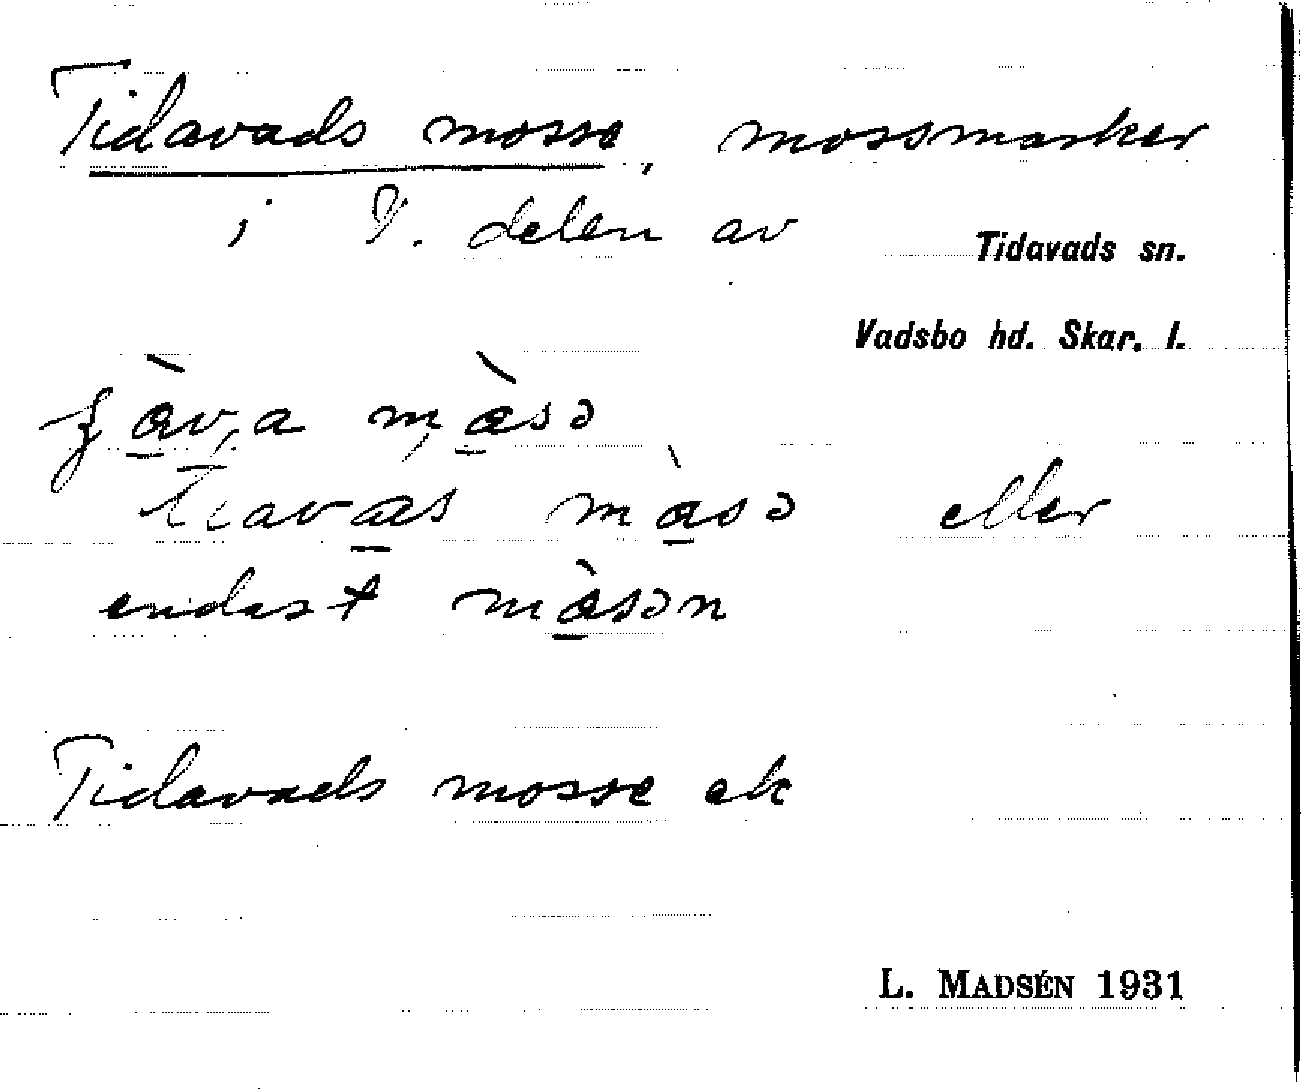 Tidavads mosse, mossmarker
i V. delen av Tidavads sn.
Vadsbo hd. Skar. l.
mòsə
tiavas mòsə eller
endast mòsən
Tidavads mosse ek
L. MADSÉN 1931